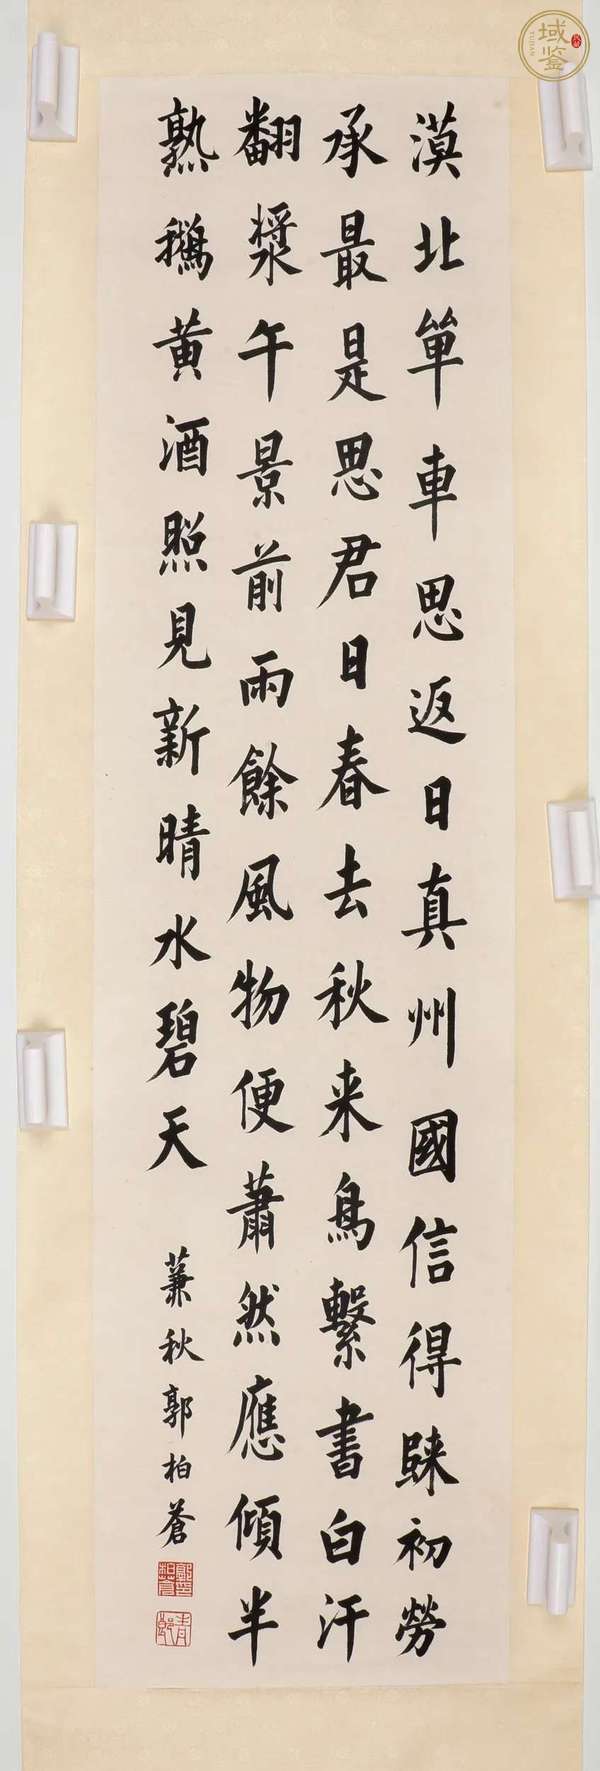 漠北單車思返日真州國信得歸初勞
承最是思君日春去秋来鳥繫書白汗
翻漿午景前雨餘風物便蕭然應傾半
熟鵝黄酒照見新晴水碧天
蒹秋郭柏蒼
青郎
域鉴
YUJIAN